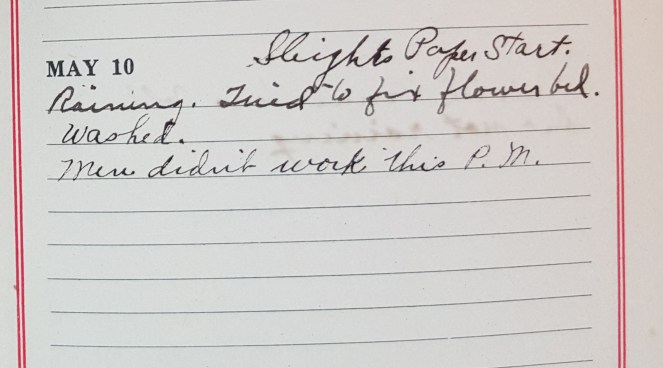 Sleights Paper Start.
MAY 10
Raining. Tried to fix flower bed.
Washed.
Men didn't work this P.M.